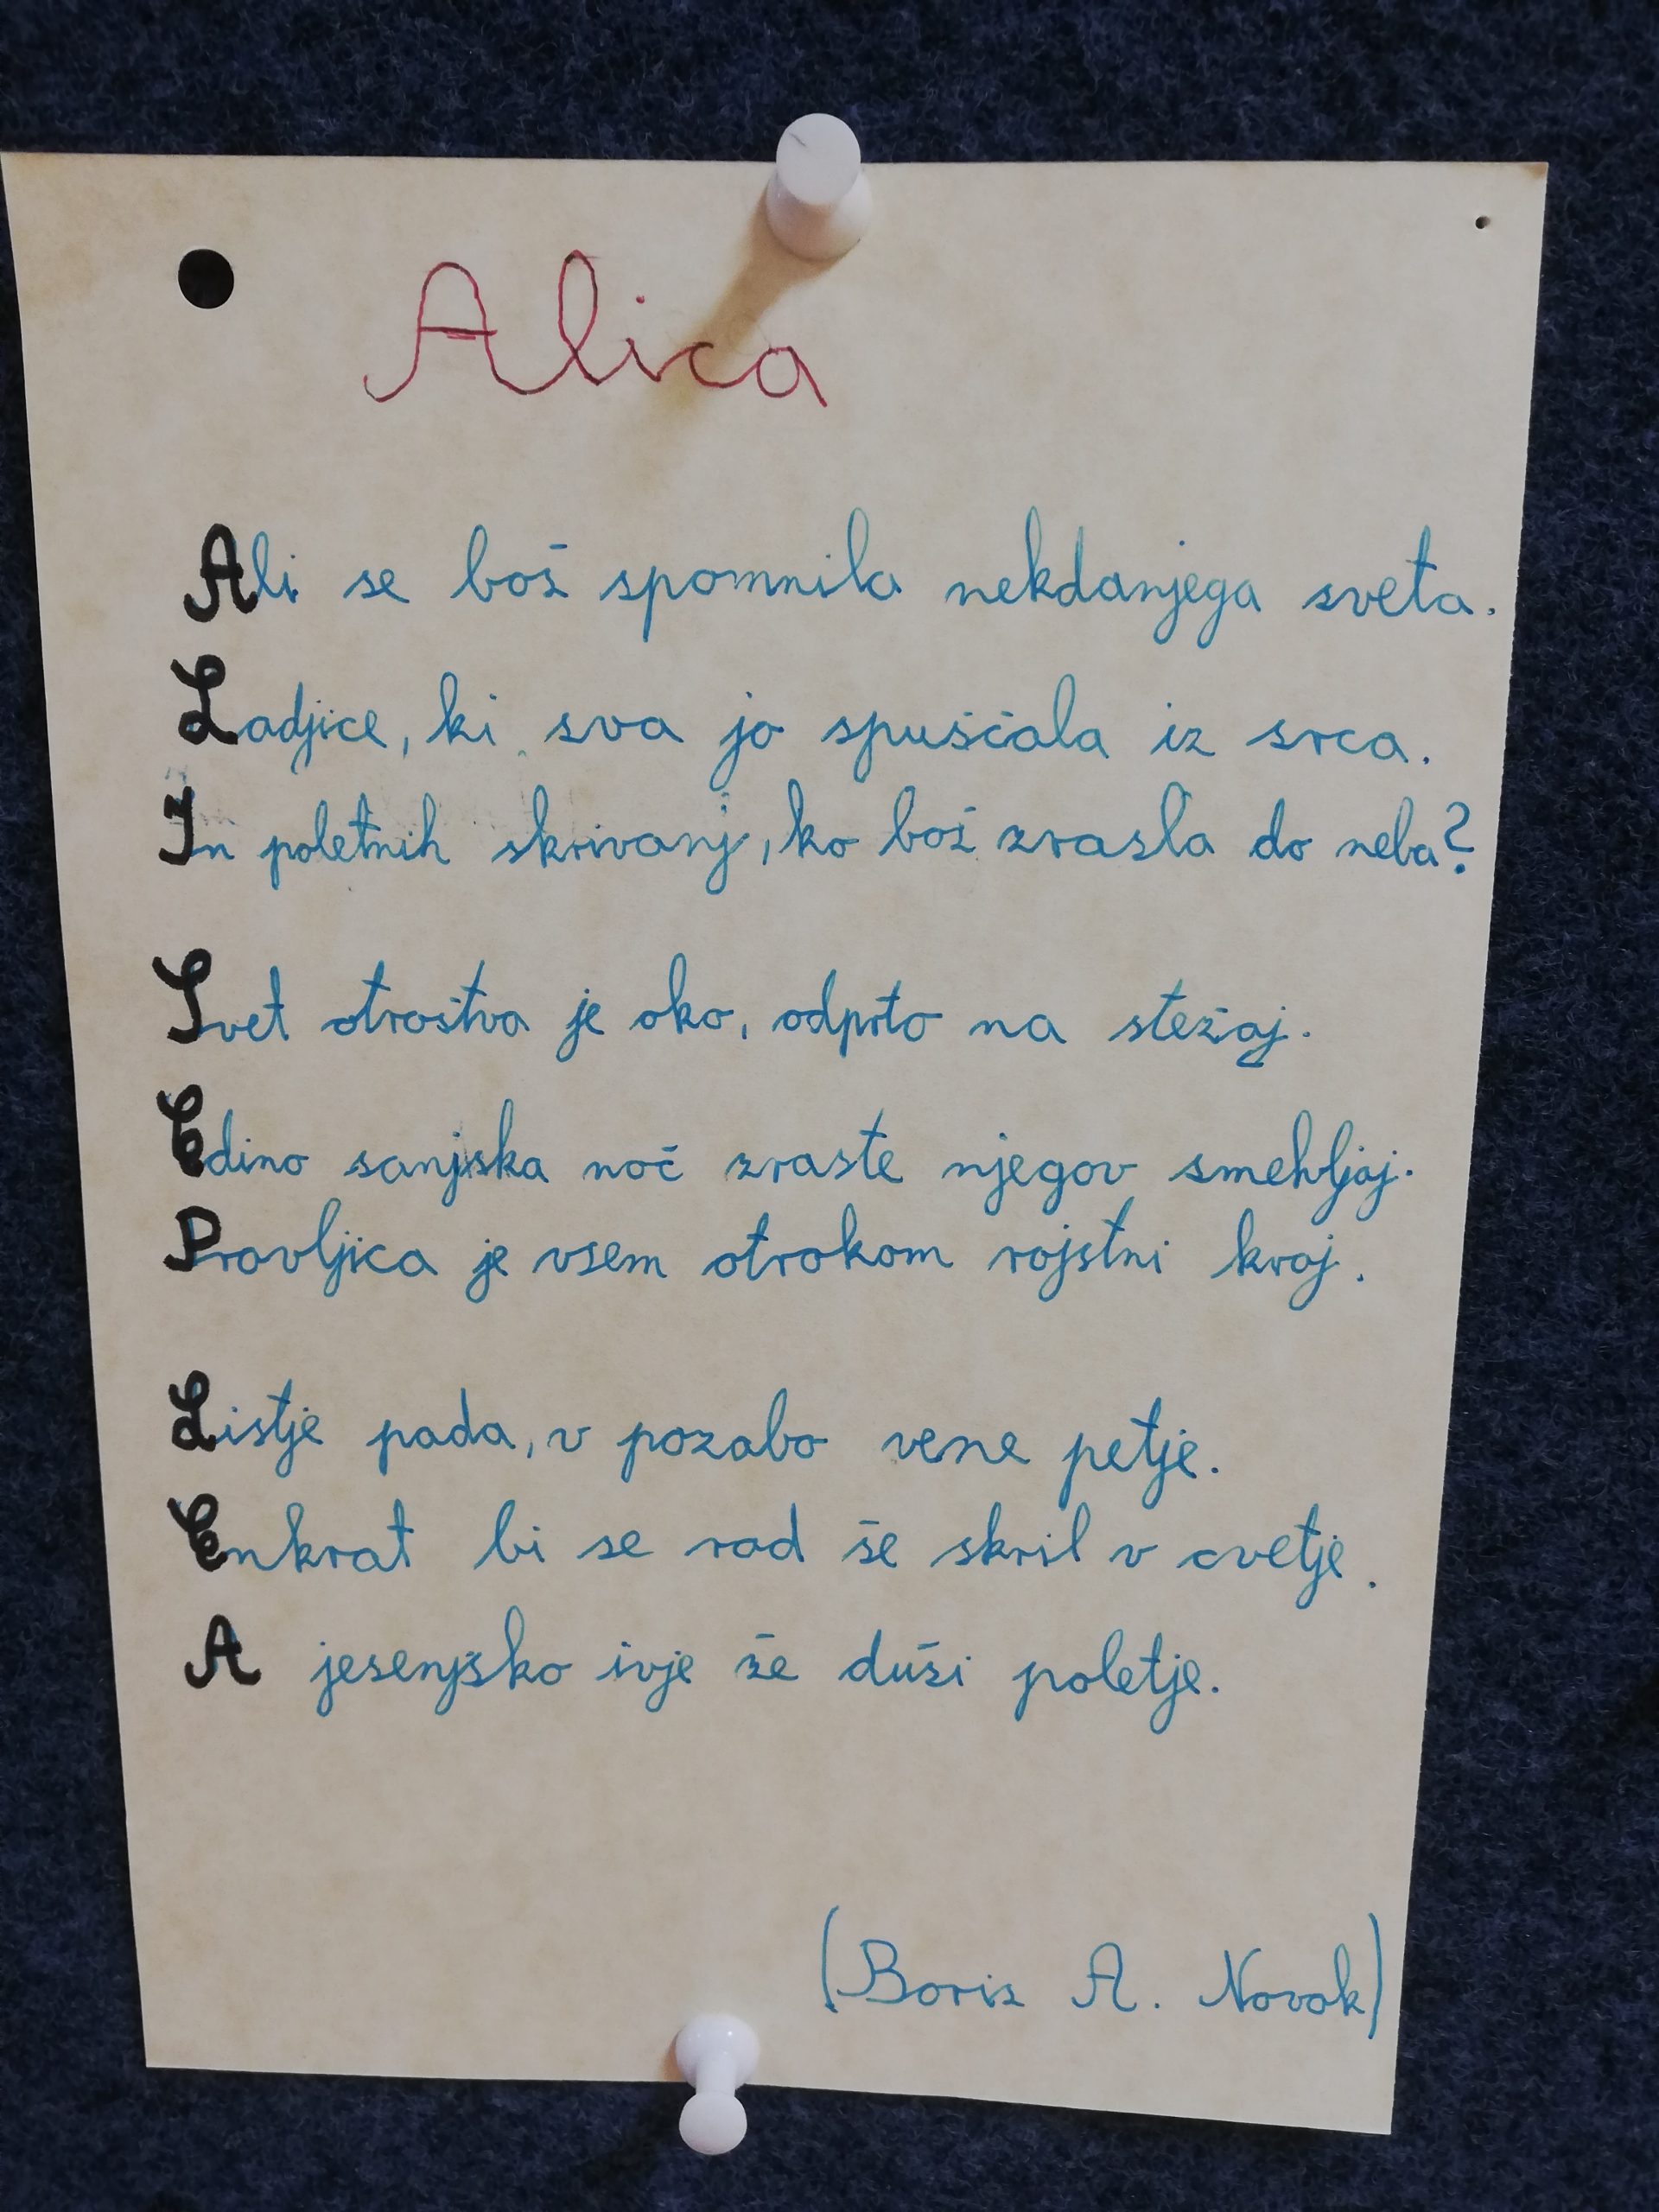 Alica
Ali se boš spomnila nekdanjega sveta.
Ladjice, ki sva jo spuščala iz srca.
In poletnih skrivanj, ko boš zrasla do neba?
Svet otroštva je oko, odprto na stežaj.
Edino sanjska noč zraste njegov smehljaj.
Pravljica je vsem otrokom rojstni kraj.
Listje pada, v pozabo vene petje.
Enkrat bi se rad še skril v cvetje.
A jesenjsko ivje že duši poletje.
(Boris A. Novak)